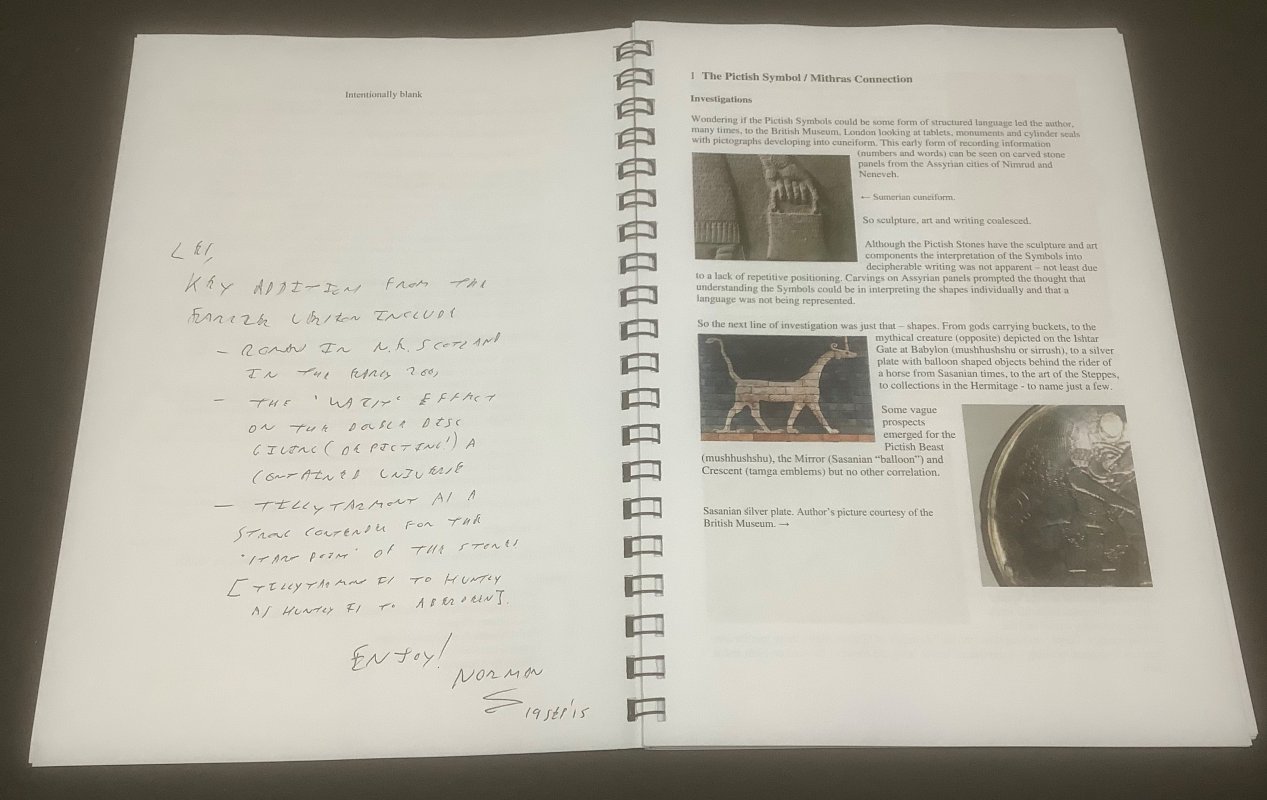 Intentionally blank
KEY ADDITIONS FROM THE
EARLIER VERSION INCLUDE
- ROMANS IN N.E. SCOTLAND
IN THE EARLY 200s
- THE ' EFFECT
ON THE DOUBLE DISC
GIVING (OR PICTING!) A
CONTAINED UNIVERSE
- TILLYTARMONT AS A
STRONG CONTENDER FOR THE
'START POINT' OF THE STONES
[TILLYTARMONT IS TO HUNTLY
AS HUNTLY IS TO ABERDEEN].
ENJOY!
NORMAN
19 SEP '15
1 The Pictish Symbol / Mithras Connection
Investigations
Wondering if the Pictish Symbols could be some form of structured language led the author,
many times, to the British Museum, London looking at tablets, monuments and cylinder seals
with pictographs developing into cuneiform. This early form of recording information
(numbers and words) can be seen on carved stone
panels from the Assyrian cities of Nimrud and
Neneveh.
← Sumerian cuneiform.
So sculpture, art and writing coalesced.
Although the Pictish Stones have the sculpture and art
components the interpretation of the Symbols into
decipherable writing was not apparent – not least due
to a lack of repetitive positioning. Carvings on Assyrian panels prompted the thought that
understanding the Symbols could be in interpreting the shapes individually and that a
language was not being represented.
So the next line of investigation was just that – shapes. From gods carrying buckets, to the
mythical creature (opposite) depicted on the Ishtar
Gate at Babylon (mushhushshu or sirrush), to a silver
plate with balloon shaped objects behind the rider of
a horse from Sasanian times, to the art of the Steppes,
to collections in the Hermitage - to name just a few.
Some vague
prospects
emerged for the
Pictish Beast
(mushhushshu), the Mirror (Sasanian “balloon”) and
Crescent (tamga emblems) but no other correlation.
Sasanian silver plate. Author's picture courtesy of the
British Museum. →